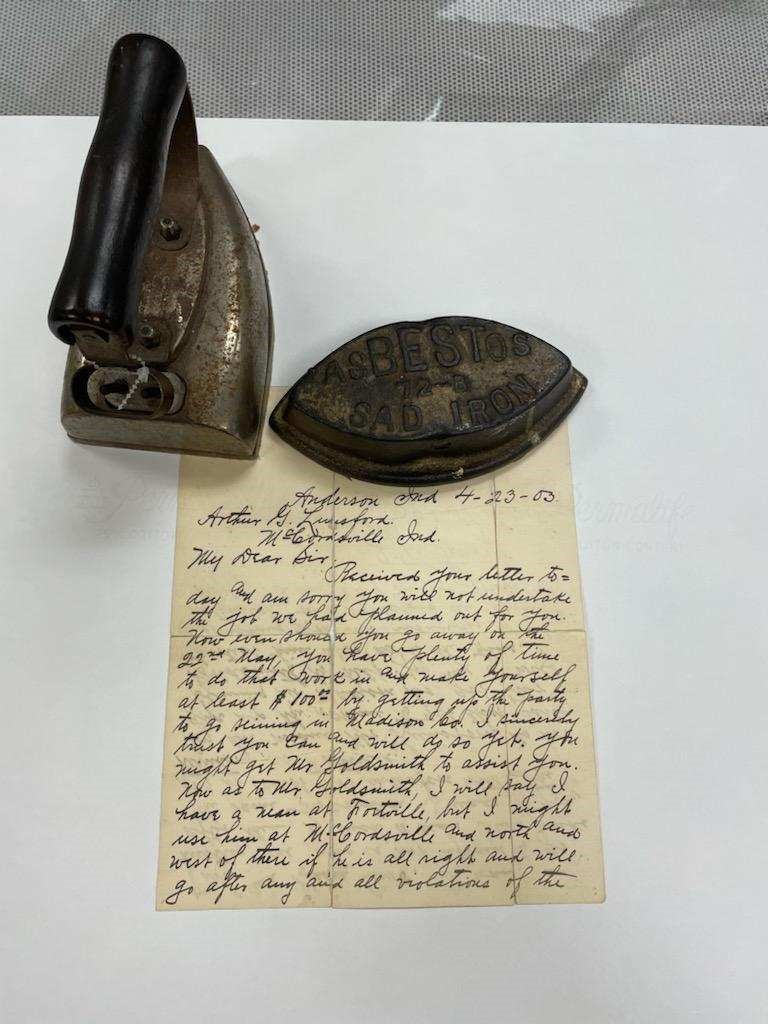 ASBESTOS
72-B
SAD IRON
Anderson Ind 4-23-03.
Arthur G. Lunsford.
McCordsville Ind.
My Dear Sir.
Received your letter to=
day and am sorry you will not undertake
the job we had planned out for you.
Now even should you go away on the
22nd May, you have plenty of time
to do that work in and make yourself
at least $100 00 by getting up the party
to go seining in Madison Co. I sincerely
trust you can and will do so yet. You
might get Mr Goldsmith to assist you.
Now as to Mr Goldsmith, I will say I
have a man at Fortville, but I might
use him at McCordsville and north and
west of there if he is all right and will
go after any and all violations of the